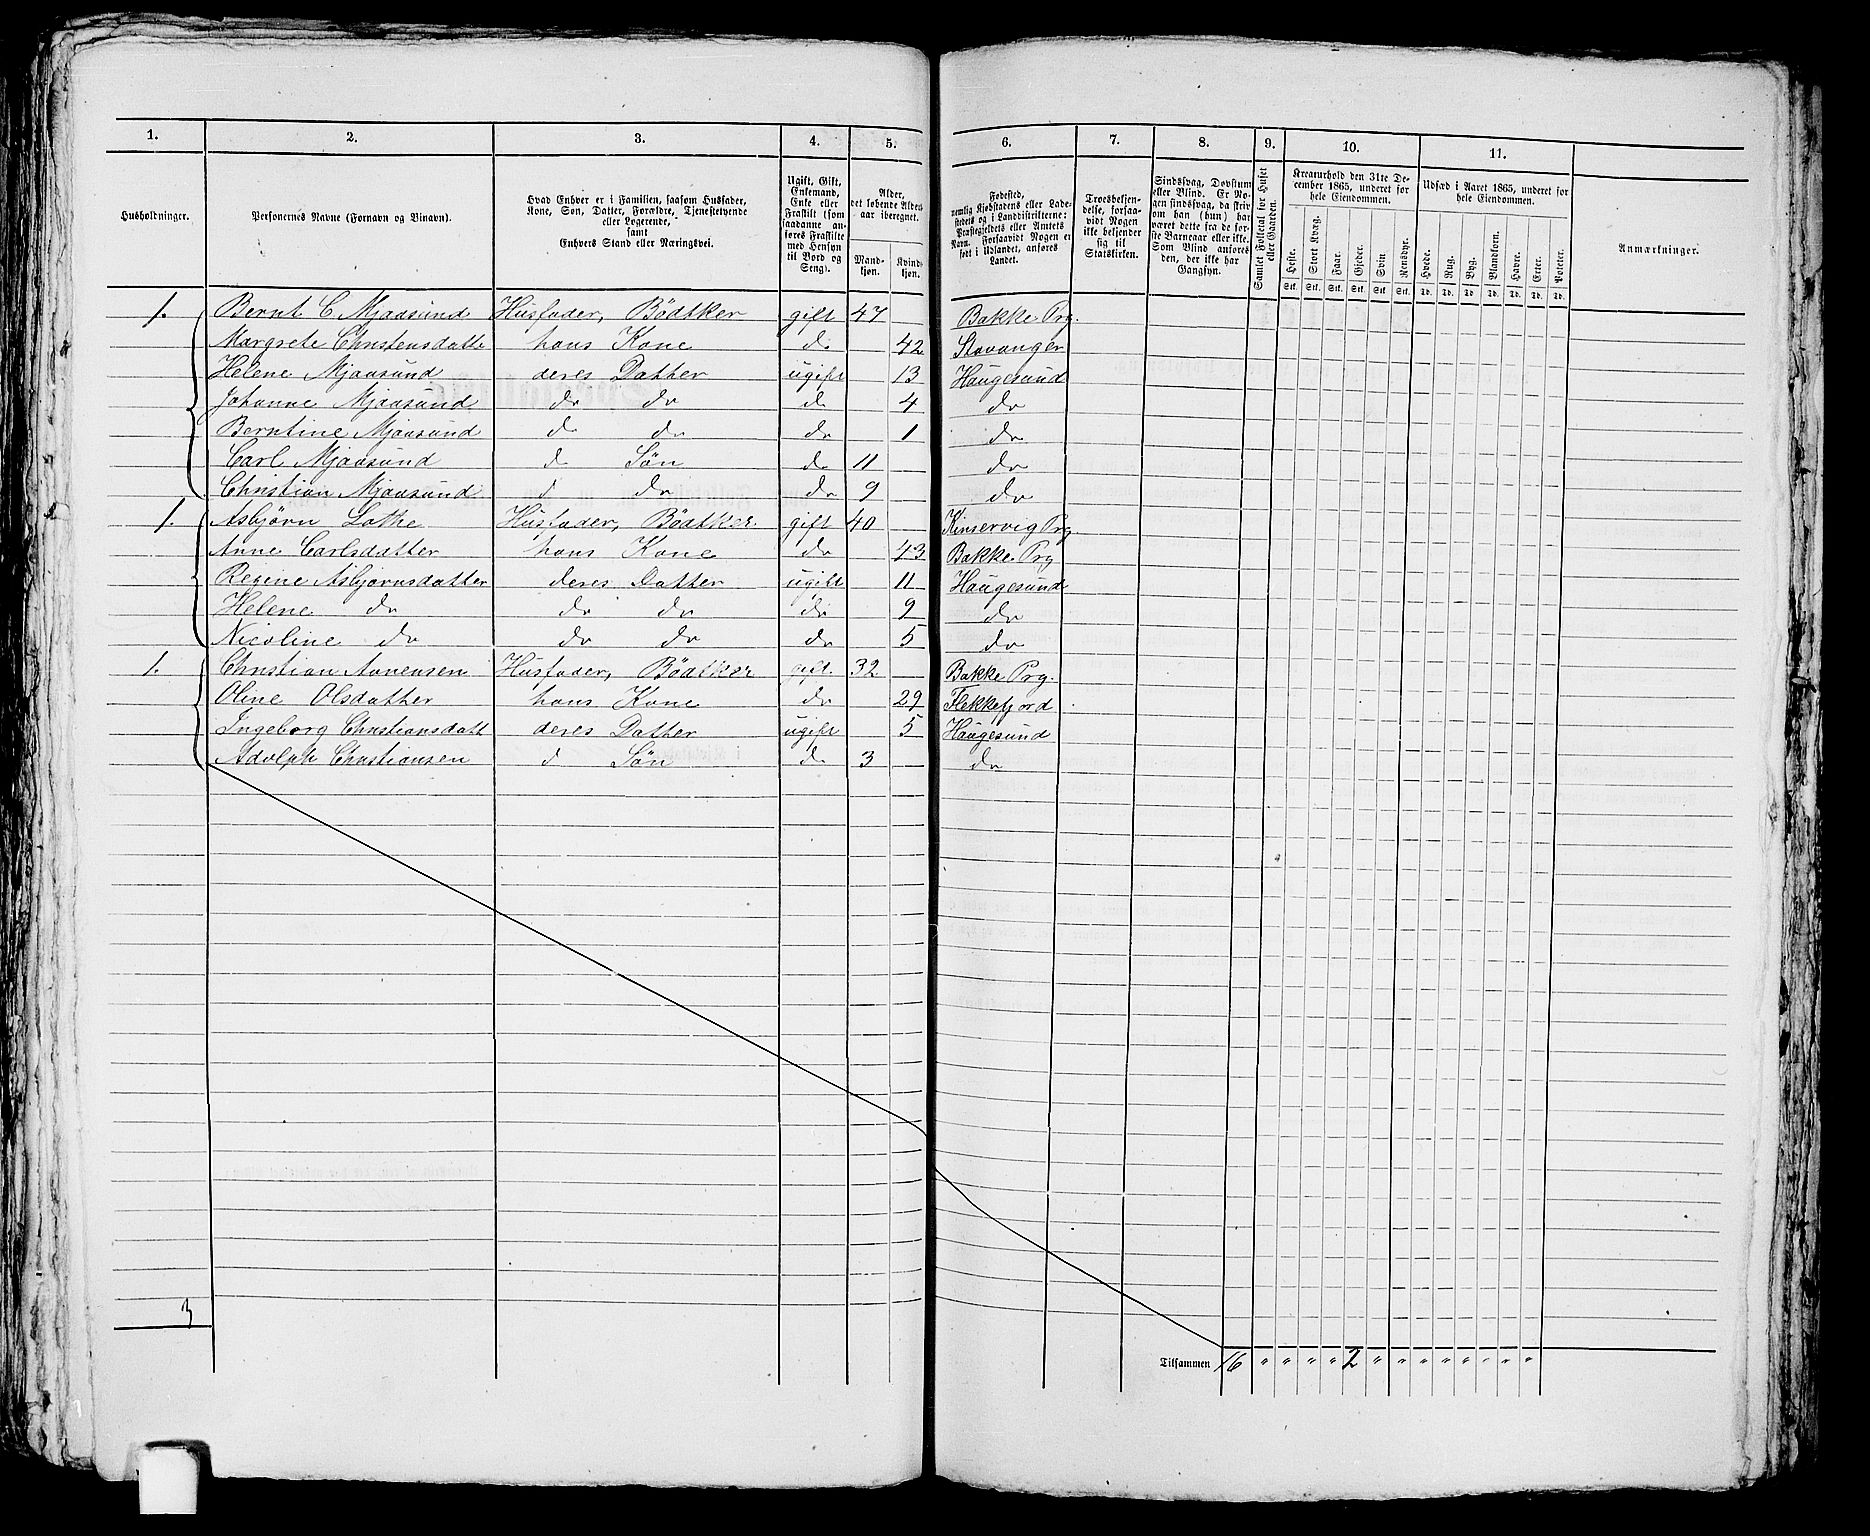 1. 2. 3. 4. 5. 6. 7. 8. 9. 10. 11.
Husholdninger.
Personernes Navne (Fornavn og Binavn).
Hvad Enhver er i Familien, saasom Husfader,
Kone, Søn, Datter, Forældre, Tjenestetyende
eller Logerende,
samt
Enhvers Stand eller Næringsvei.
Ugift, Gift,
Enkemand,
Enke eller
Fraskilt (som
saadanne an-
føres Fraskilte
med Hensyn
til Bord og
Seng).
Alder,
det løbende Alders-
aar iberegnet.
Mand-
kjøn.
Kvind-
kjøn.
Fødested,
nemlig Kjøbstadens eller Lade-
stedets og i Landdistrikterne:
Præstegjeldets eller Amtets
Navn. Forsaavidt Nogen er
født i Udlandet, anføres
Landet.
Troesbekjen-
delse, forsaa-
vidt Nogen
ikke bekjender
sig til
Statskirken.
Sindssvag, Døvstum
eller Blind. Er No-
gen sindssvag, da skriv
om han (hun) har
været dette fra de før-
ste Barneaar eller ikke.
Som Blind ansføres
den, der ikke har
Gangsyn.
Samlet Folketal for Huset
eller Gaarden.
Kreaturhold den 31te De-
cember 1865, underet for
hele Eiendommen.
Heste. Stort Kvæg. Faar. Gjeder. Svin. Rensdyr.
Stk. Stk. Stk. Stk. Stk. Stk.
Udsæd i Aaret 1865, underet for
hele Eiendommen.
Hvede. Rug. Byg. Blandkorn. Havre. Erter. Poteter.
Td. Td. Td. Td. Td. Td. Td.
Anmærkninger.
1. Bernt C Mjaasund Husfader, Bödtker gift 47 Bakke Prg.
Margrete Christensdatte hans Kone do 42 Stavanger
Helene Mjaasund deres Datter ugift 13 Haugesund
Johanne Mjaasund do do do 4 do
Berntine Mjaasund do do do 1 do
Carl Mjaasund do Sön do 11 do
Christian Mjaasund do do do 9 do
1. Asbjörn Lothe Husfader, Bödtker. gift 40 Kinservig Prg
Anne Carlsdatter hans Kone do 43 Bakke Prg
Regine Asbjörnsdatter deres Datter ugift 11 Haugesund
Helene do do do do 9 do
Nicoline do do do do 5 do
1. Christian Aanensen Husfader, Bödtker gift. 32 Bakke Prg.
Oline Olsdatter hans Kone do 29 Flekkefjord
Ingeborg Christiansdatt deres Datter ugift 5 Haugesund
Adolph Christiansen do Sön do 3 do
3
Tilsammen 16 " " " " 2 " " " " " " " "